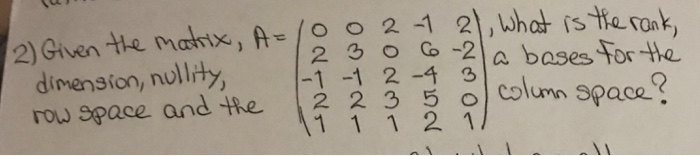 2) Given the matrix, A= (0 0 2 -1 2), What is the rank,
2 3 0 6 -2 a bases for the
dimension, nullity, -1 -1 2 -4 3
2 2 3 5 0 column space?
row space and the 1 1 1 2 1